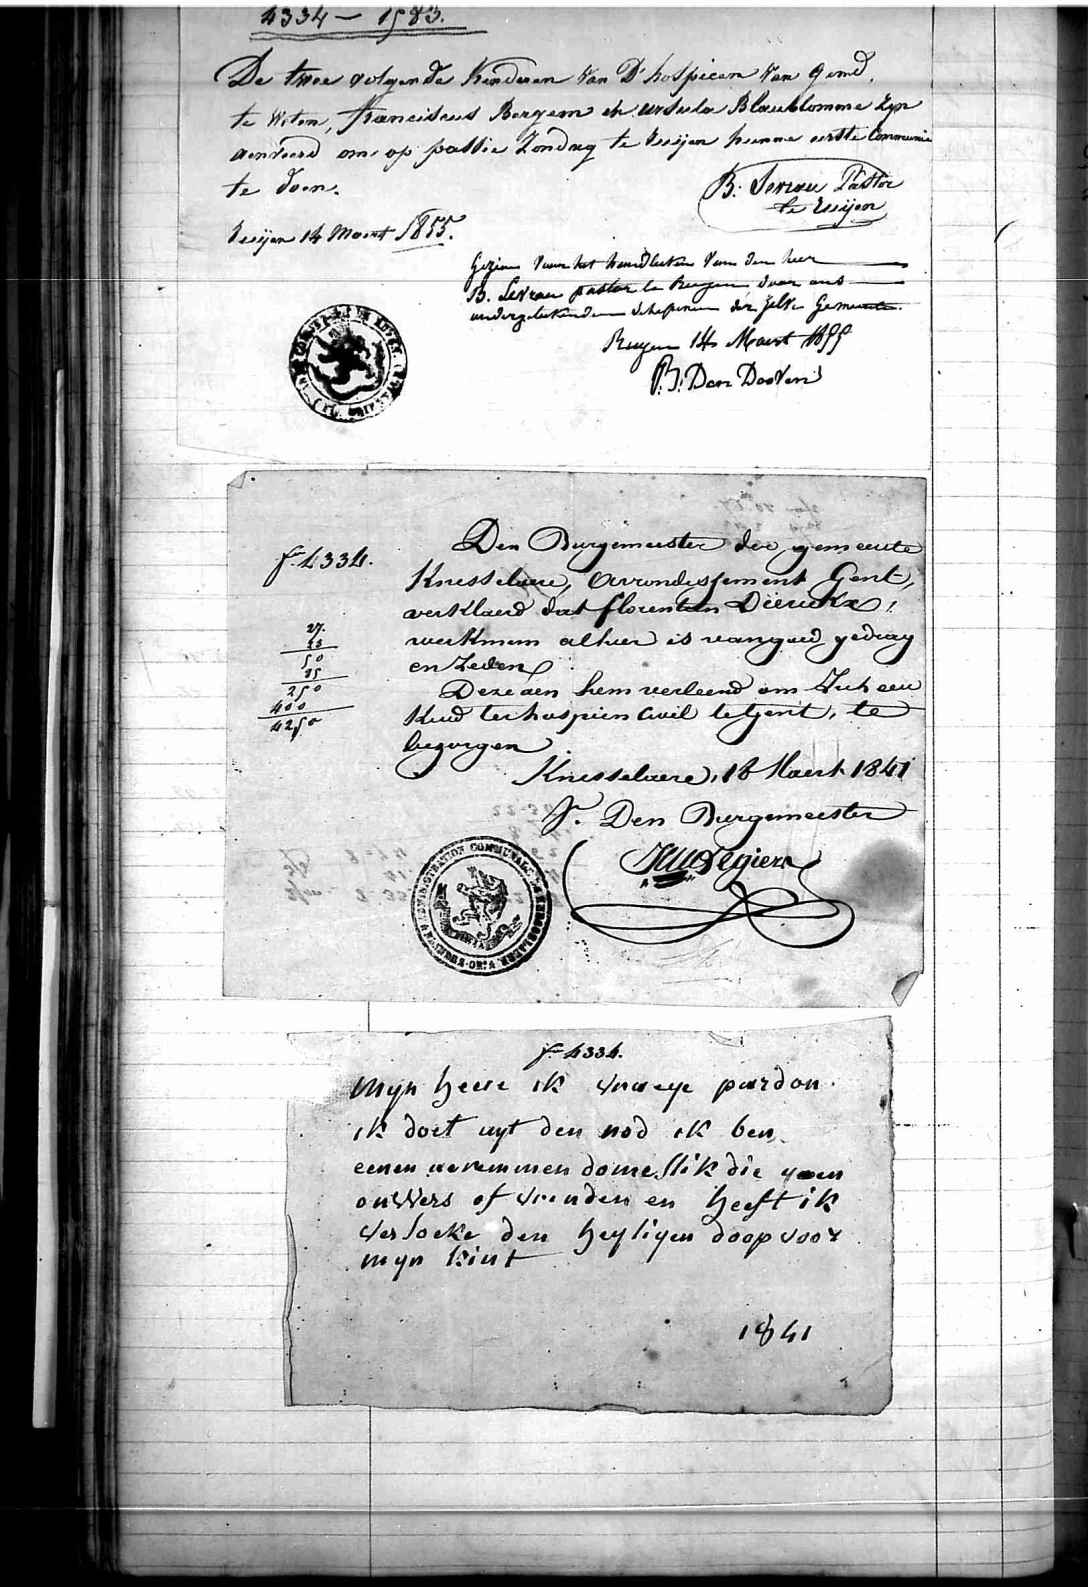 4334 — 1583.
De twee volgende Kinderen van D'hospicen van Gend.
te weten, franciscus Bergem en ursula Blaublomme zyn
aenveerd om op passie Zondag te Ruijen hunne eerste Communie
te doen.
B. Levrau Pastor
te Ruijen
Ruijen 14 Maert 1855.
Gezien voor het handteeken van den heer
B. Levrau pastor te Ruyen door ons
ondergeteekenden schepenen der zelve Gemeente.
Ruyen 14 Maert 1855
B. Den Dooven
f. 4334.
27.
23
50
25
250
400
4250
Den Burgemeester der gemeente
Knesselaere, Arrondissement Gent,
verklaerd dat florentin Dierickx,
werkman alhier is van goed gedrag
en Zeden
Deze aen hem verleend om Zich een
Kind ter hospicen Civil te Gent, te
bezorgen
Knesselaere, 18 Maert 1841
Den Burgemeester
ADMINISTRATION COMMUNALE DE KNESSELAERE
f. 4334.
Mijn heere ik vraege pardon.
ik doet uyt den nod ik ben
eenen aeremmen domestik die geen
ouwers of vrinden en heeft ik
versoeke den heyligen doop voor
mijn kint
1841